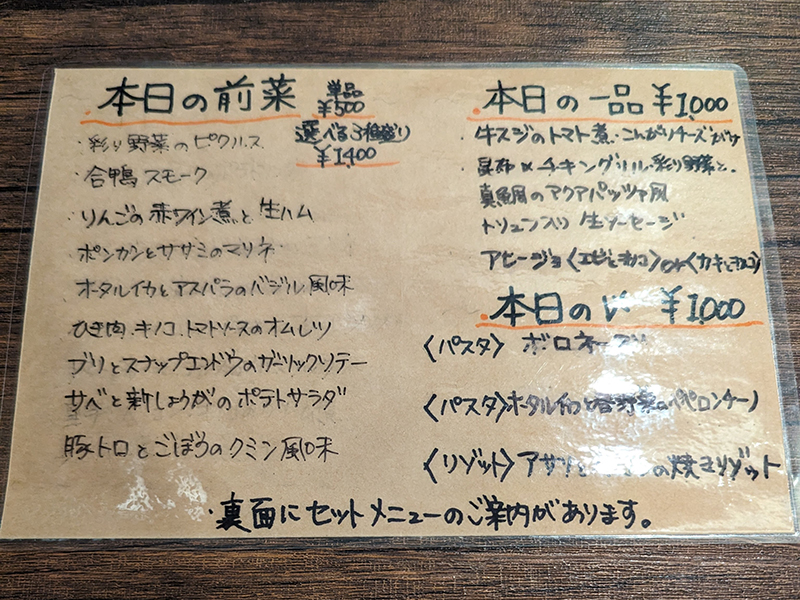 ・本日の前菜 単品 ¥500
選べる3種盛り ¥1,400
・彩り野菜のピクルス
・合鴨スモーク
・りんごの赤ワイン煮と生ハム
・ポンカンとササミのマリネ
・ホタルイカとアスパラのバジル風味
ひき肉.キノコ.トマトソースのオムレツ
ブリとスナップエンドウのガーリックソテー
サバと新しょうがのポテトサラダ
豚トロとごぼうのクミン風味
・本日の一品 ¥1,000
・牛スジのトマト煮.こんがりチーズがけ
チキングリル.彩り野菜と.
真鯛のアクアパッツァ風
トリュフ入り生ソーセージ
アヒージョ〈エビとキノコ〉or〈カキとキノコ〉
・本日の ¥1,000
〈パスタ〉ボロネーゼ
〈パスタ〉ホタルイカと野菜のペペロンチーノ
〈リゾット〉アサリと の焼きリゾット
・裏面にセットメニューのご案内があります。